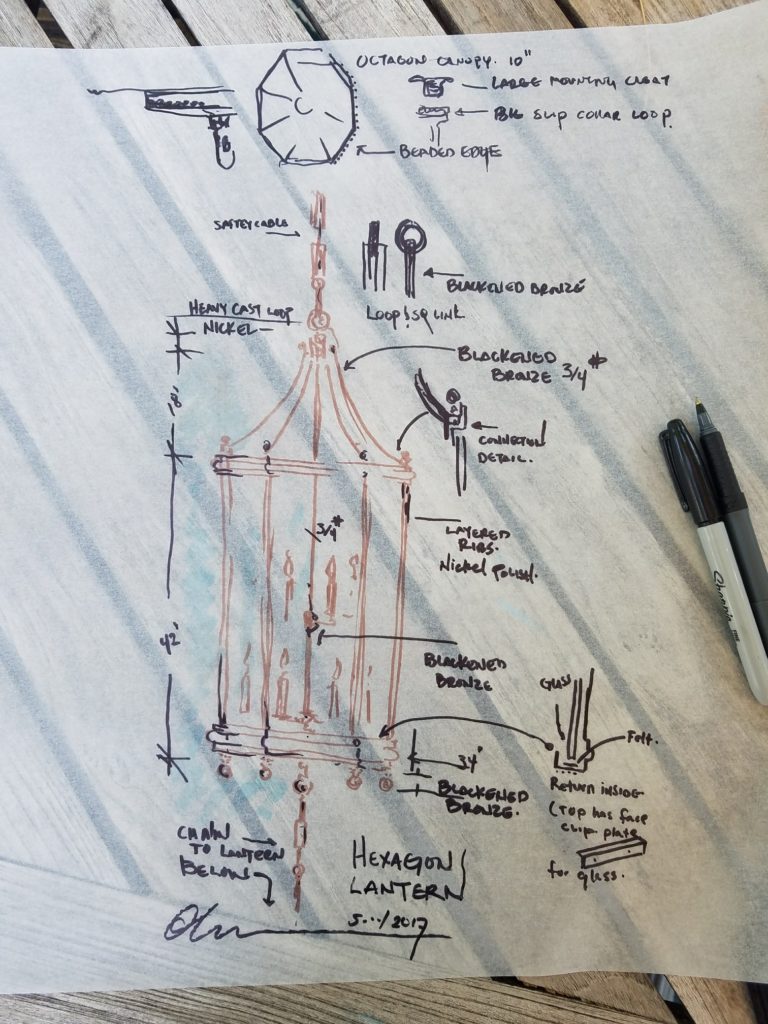 OCTAGON CANOPY. 10"
LARGE MOUNTING CLEAT
BIG SLIP COLLAR LOOP.
BEADED EDGE
SAFTEY CABLE
BLACKENED BRONZE
LOOP & SQ LINK
HEAVY CAST LOOP
NICKEL
BLACKENED
BRONZE 3/4"
18"
CONNECTION
DETAIL.
3/4"
LAYERED
RIBS.
Nickel Polish.
42"
BLACKENED
BRONZE
GLASS
Felt.
Return inside
(Top has face
clip plate
for glass.
BLACKENED
BRONZE.
CHAIN
TO LANTERN
BELOW
HEXAGON
LANTERN
/2017
Sharpie